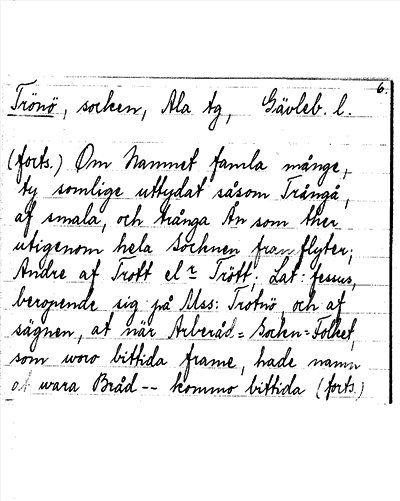 6.
Trönö, socken, Ala tg, Gävleb. l.
(forts.) Om Namnet famla månge,
ty somlige uttydat såsom Trångå,
af smala, och trånga Ån som ther
utigenom hela Sochnen fran flyter;
Andre af Trott el r Trött, Lat: fessus,
beropende sig på Mss: Trotnö, och af
sägnen, at när Arberåd=Socken=Folket,
som woro bittida frame, hade namn
at wara Bråd -- kommo bittida (forts.)